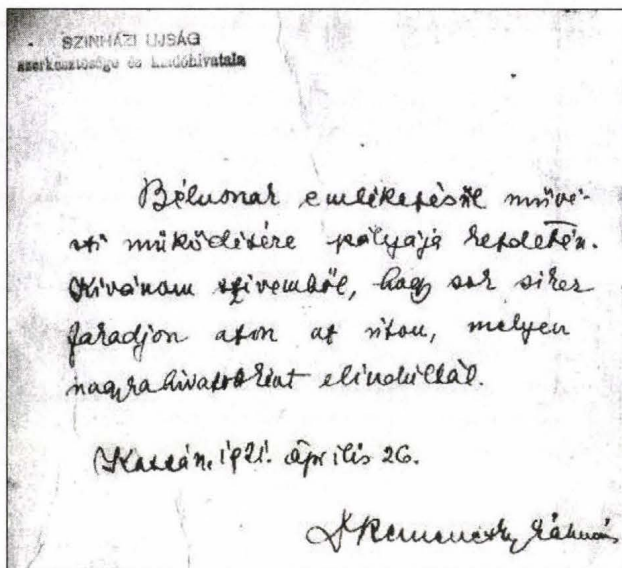 SZINHÁZI UJSÁG
szerkesztősége és kiadóhivatala
Bélusnak emlékezésül művé-
szi működésére pályája kezdetén.
Kivánom szivemből, hogy sok siker
fakadjon azon az úton, melyen
nagyrahivatottként elindúltál.
Kassán, 1921. április 26.
Dr